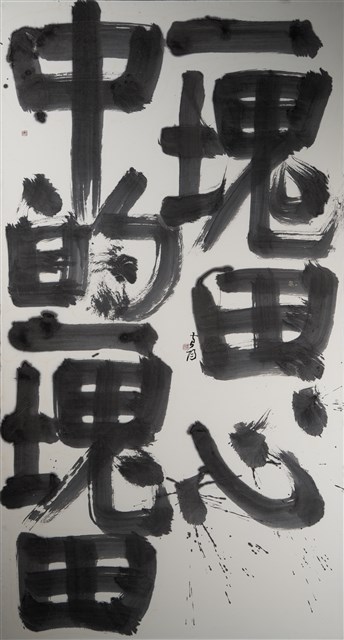 一塊田心
中的一塊田